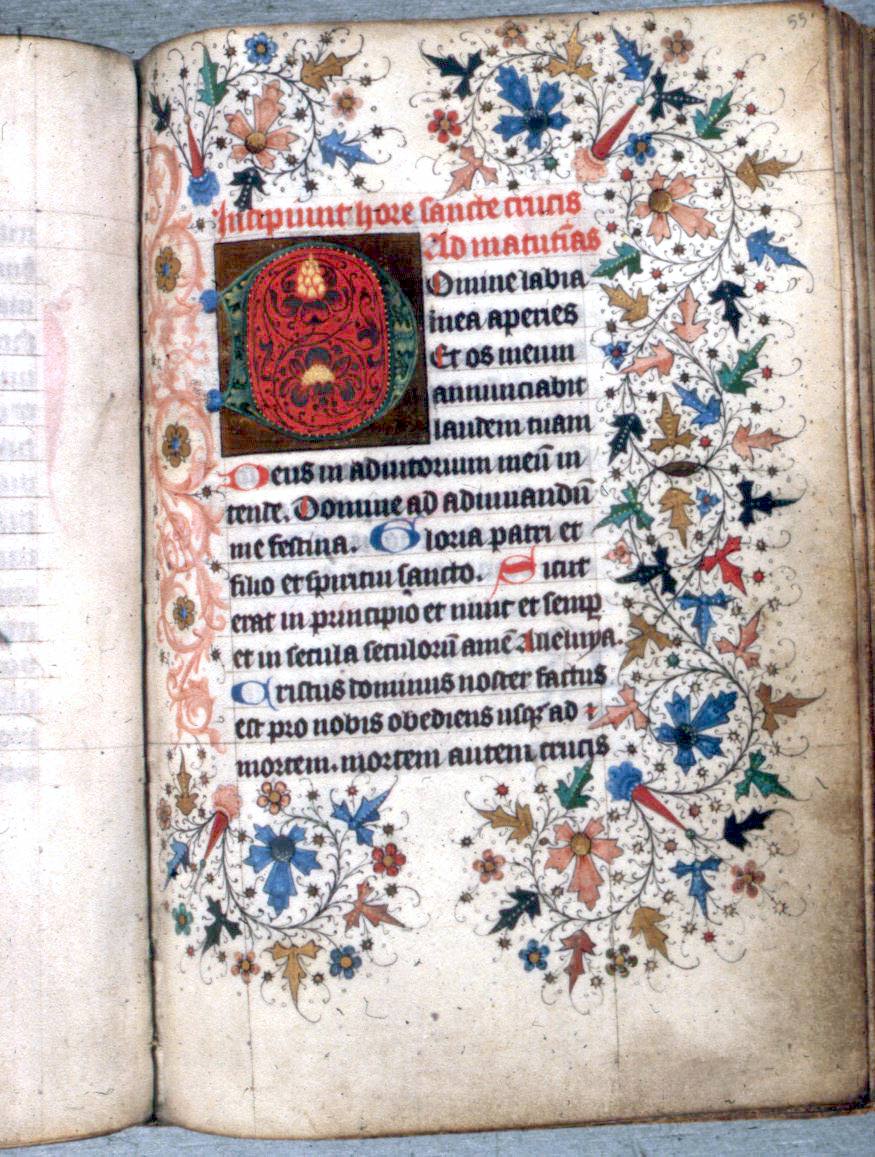 55
Incipiunt hore sancte crucis
Ad matutīas
Domine labia
mea aperies
Et os meum
annunciabit
laudem tuam
Deus in adiutorium meū in
tende. Domine ad adiuuandū
me festina. Gloria patri et
filio et spiritui sancto. Sicut
erat in principio et nunc et semp
et in secula seculorū amē Alleluya.
Cristus dominus noster factus
est pro nobis obediens usqꝫ ad
mortem. mortem autem crucis